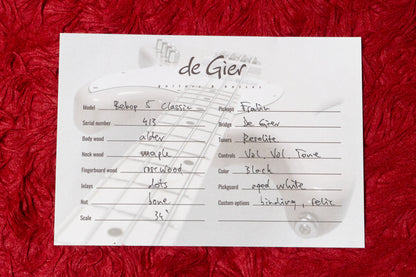 de Gier
Guitars & Basses
Model Bebop 5 Classic
Serial number 413
Body wood alder
Neck wood maple
Fingerboard wood rosewood
Inlays dots
Nut bone
Scale 34"
Pickups Fralin
Bridge De Gier
Tuners Resolite
Controls Vol, Vol, Tone
Color Black
Pickguard aged white
Custom options binding, relic